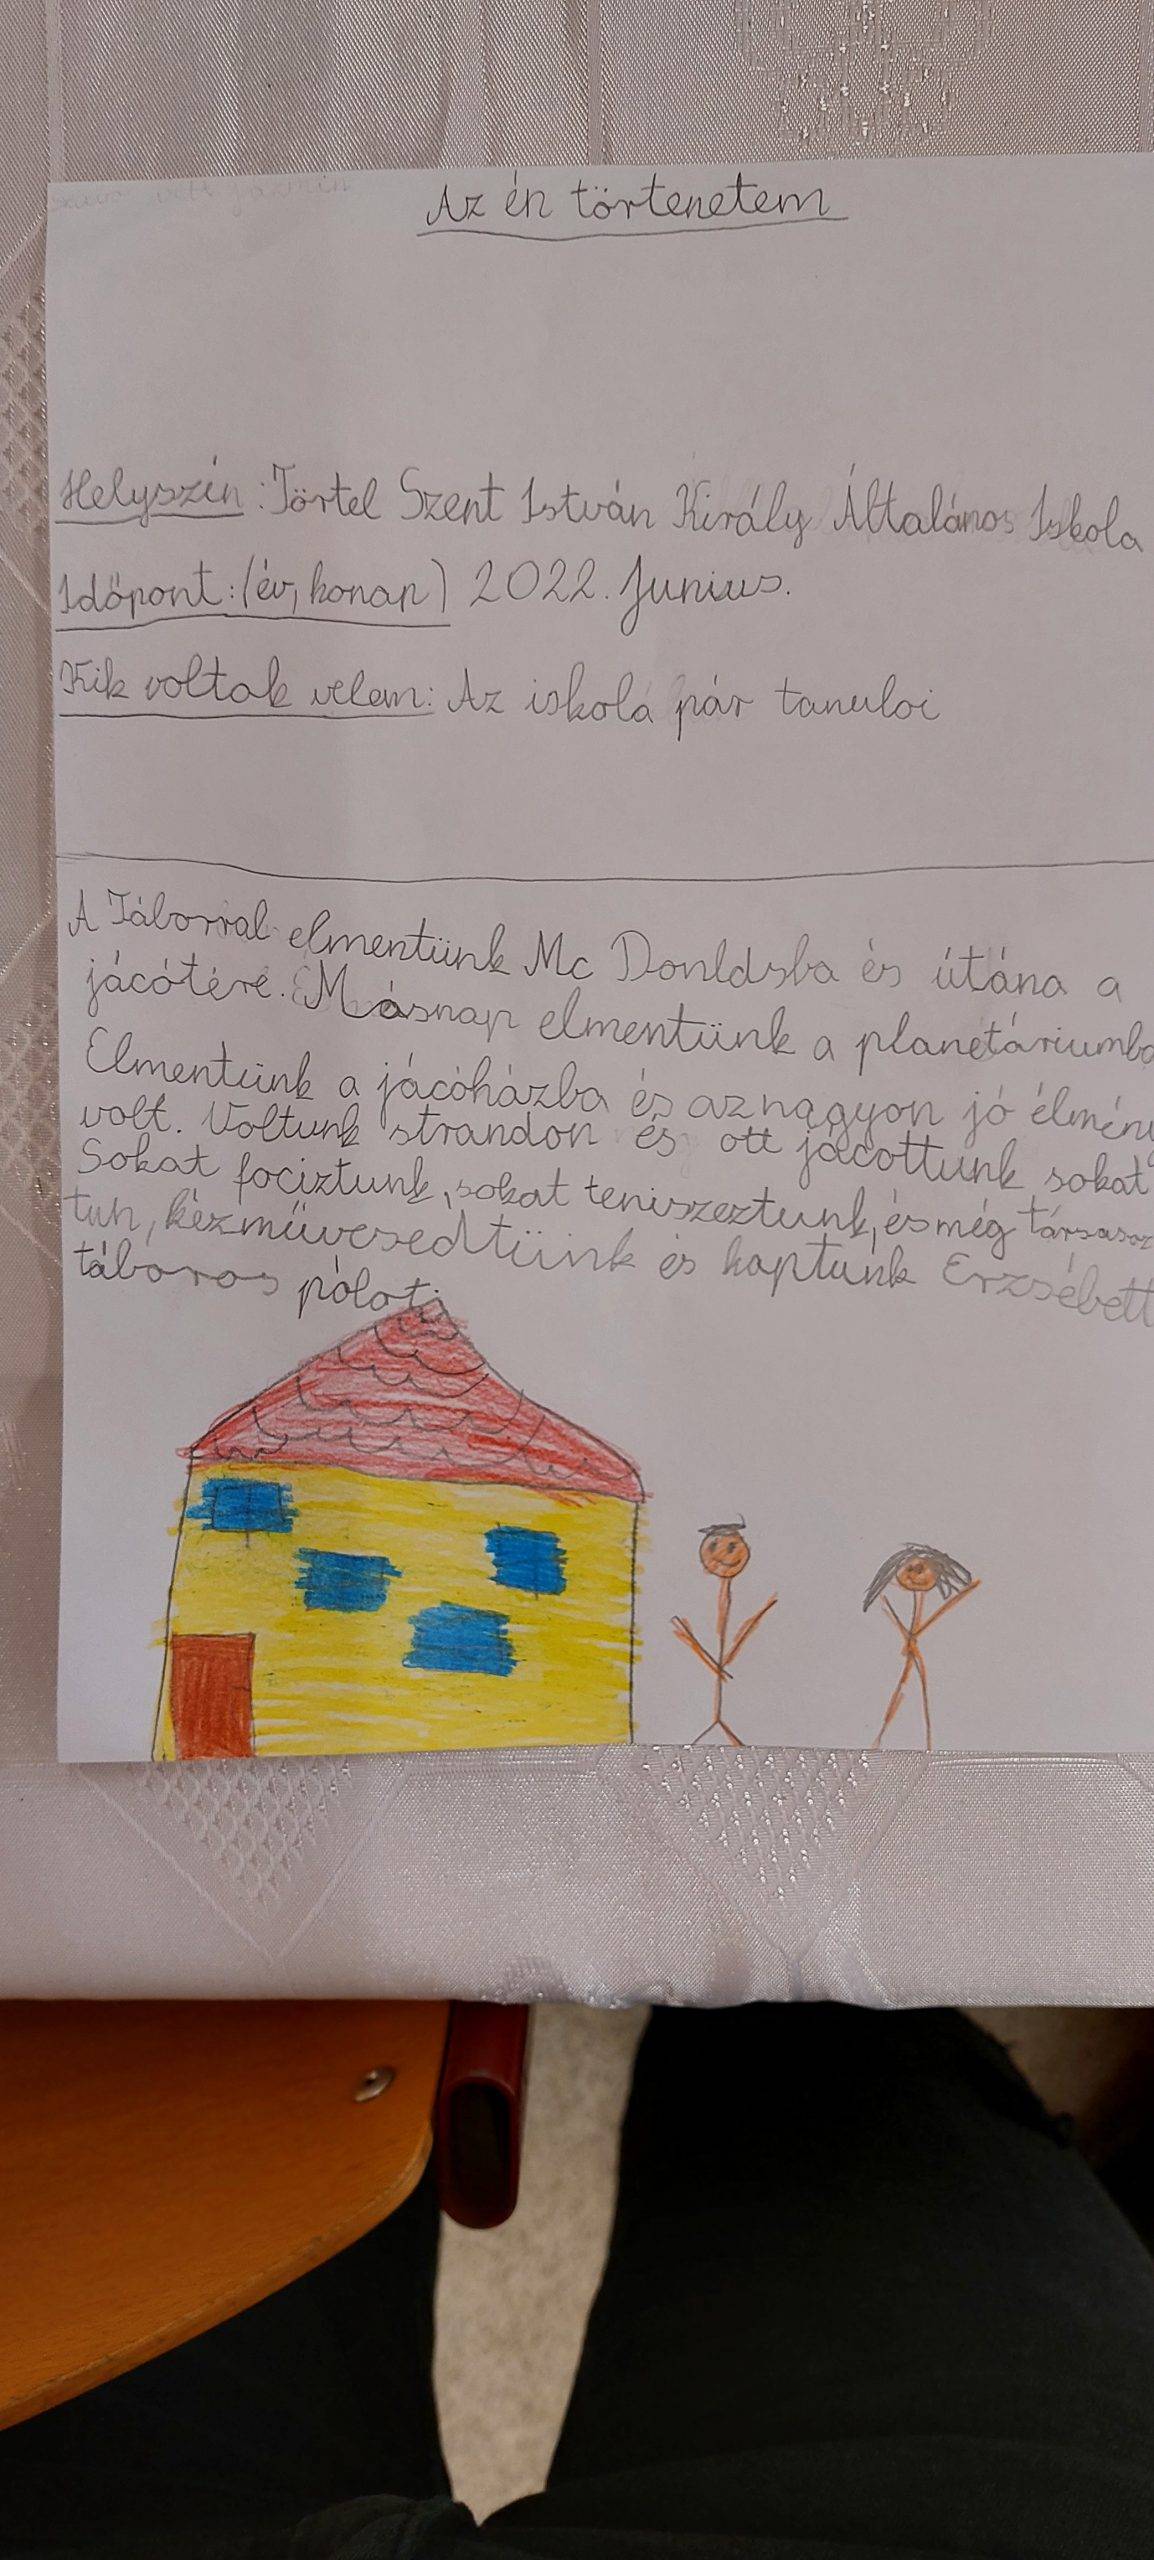 Az én törtenetem
Helyszín: Törtel Szent István Király Általános Iskola
Időpont: (év, honap) 2022. Junius.
Kik voltak velem: Az iskola pár tanuloi
A Táborral elmentünk Mc Donldsba és útána a
jácótére. Másnap elmentünk a planetáriumba
Elmentünk a jácóházba és az nagyon jó élmény
volt. Voltunk strandon és ott jácottunk sokat
Sokat fociztunk, sokat teniszeztunk, és még társasoz
tun, kézművesedtünk és kaptunk Erzsébett
táboros pólot.